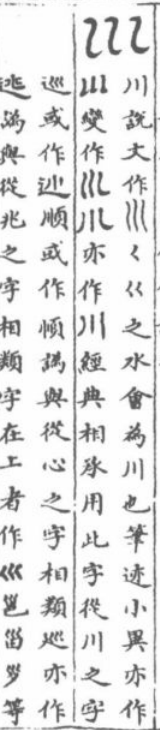 巛
川說文作巛𡿨巜之水會為川也筆迹小異亦作
巛變作川亦作川經典相承用此字從川之字
巡或作順或作譌與從心之字相類巡亦作
逃譌與從兆之字相類字在上者作巛邕甾等